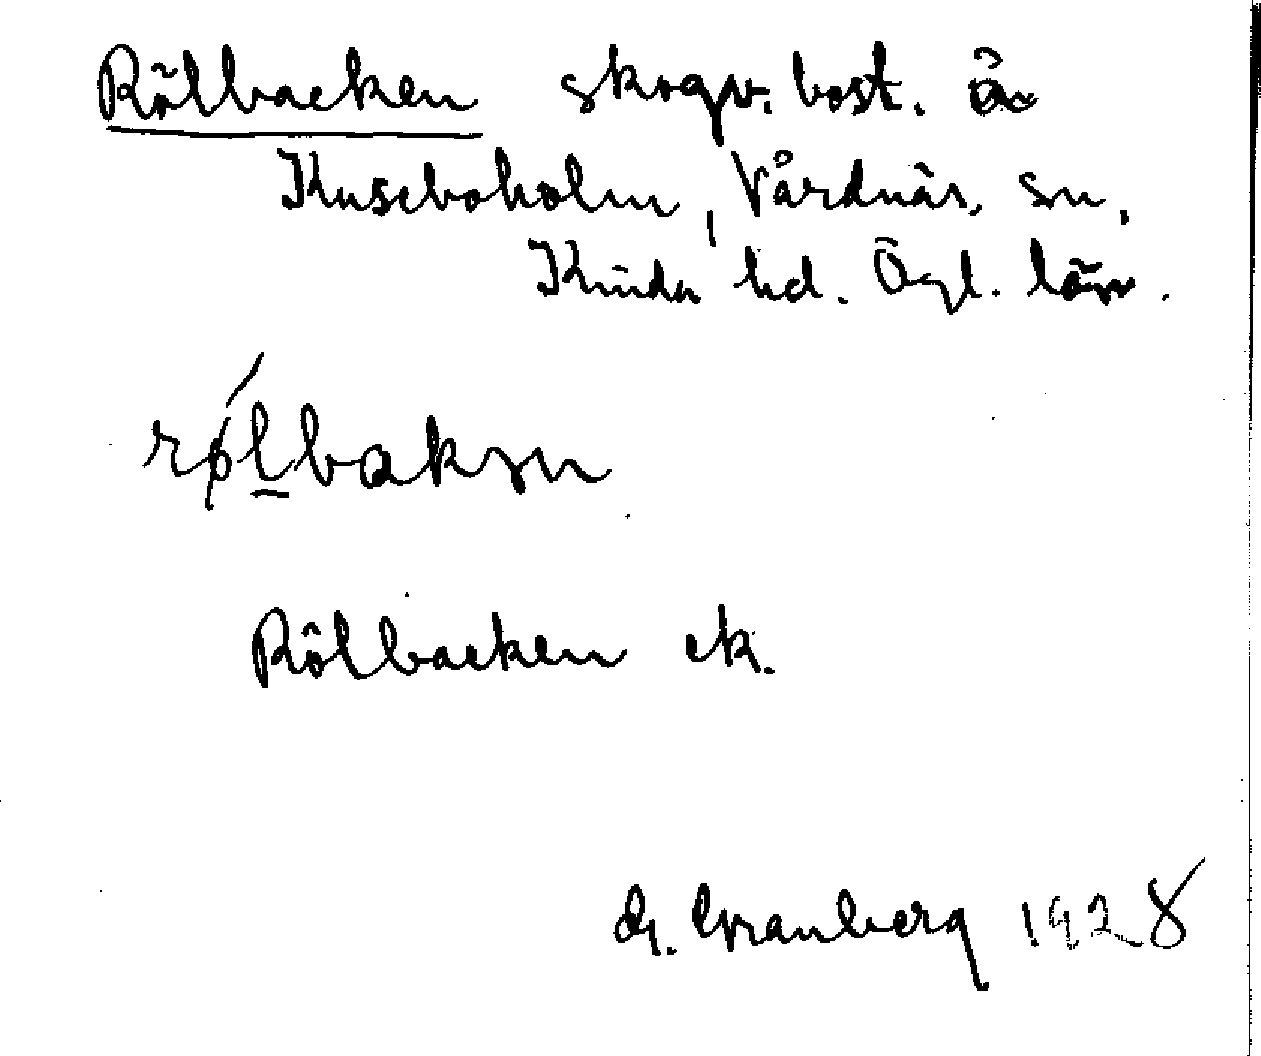 Rölbacken skogv. bost. å
Kuseboholm, Vårdnäs sn,
Kinda hd. Ögl. län.
rǿlbakən
Rölbacken ek.
G. Granberg 1928